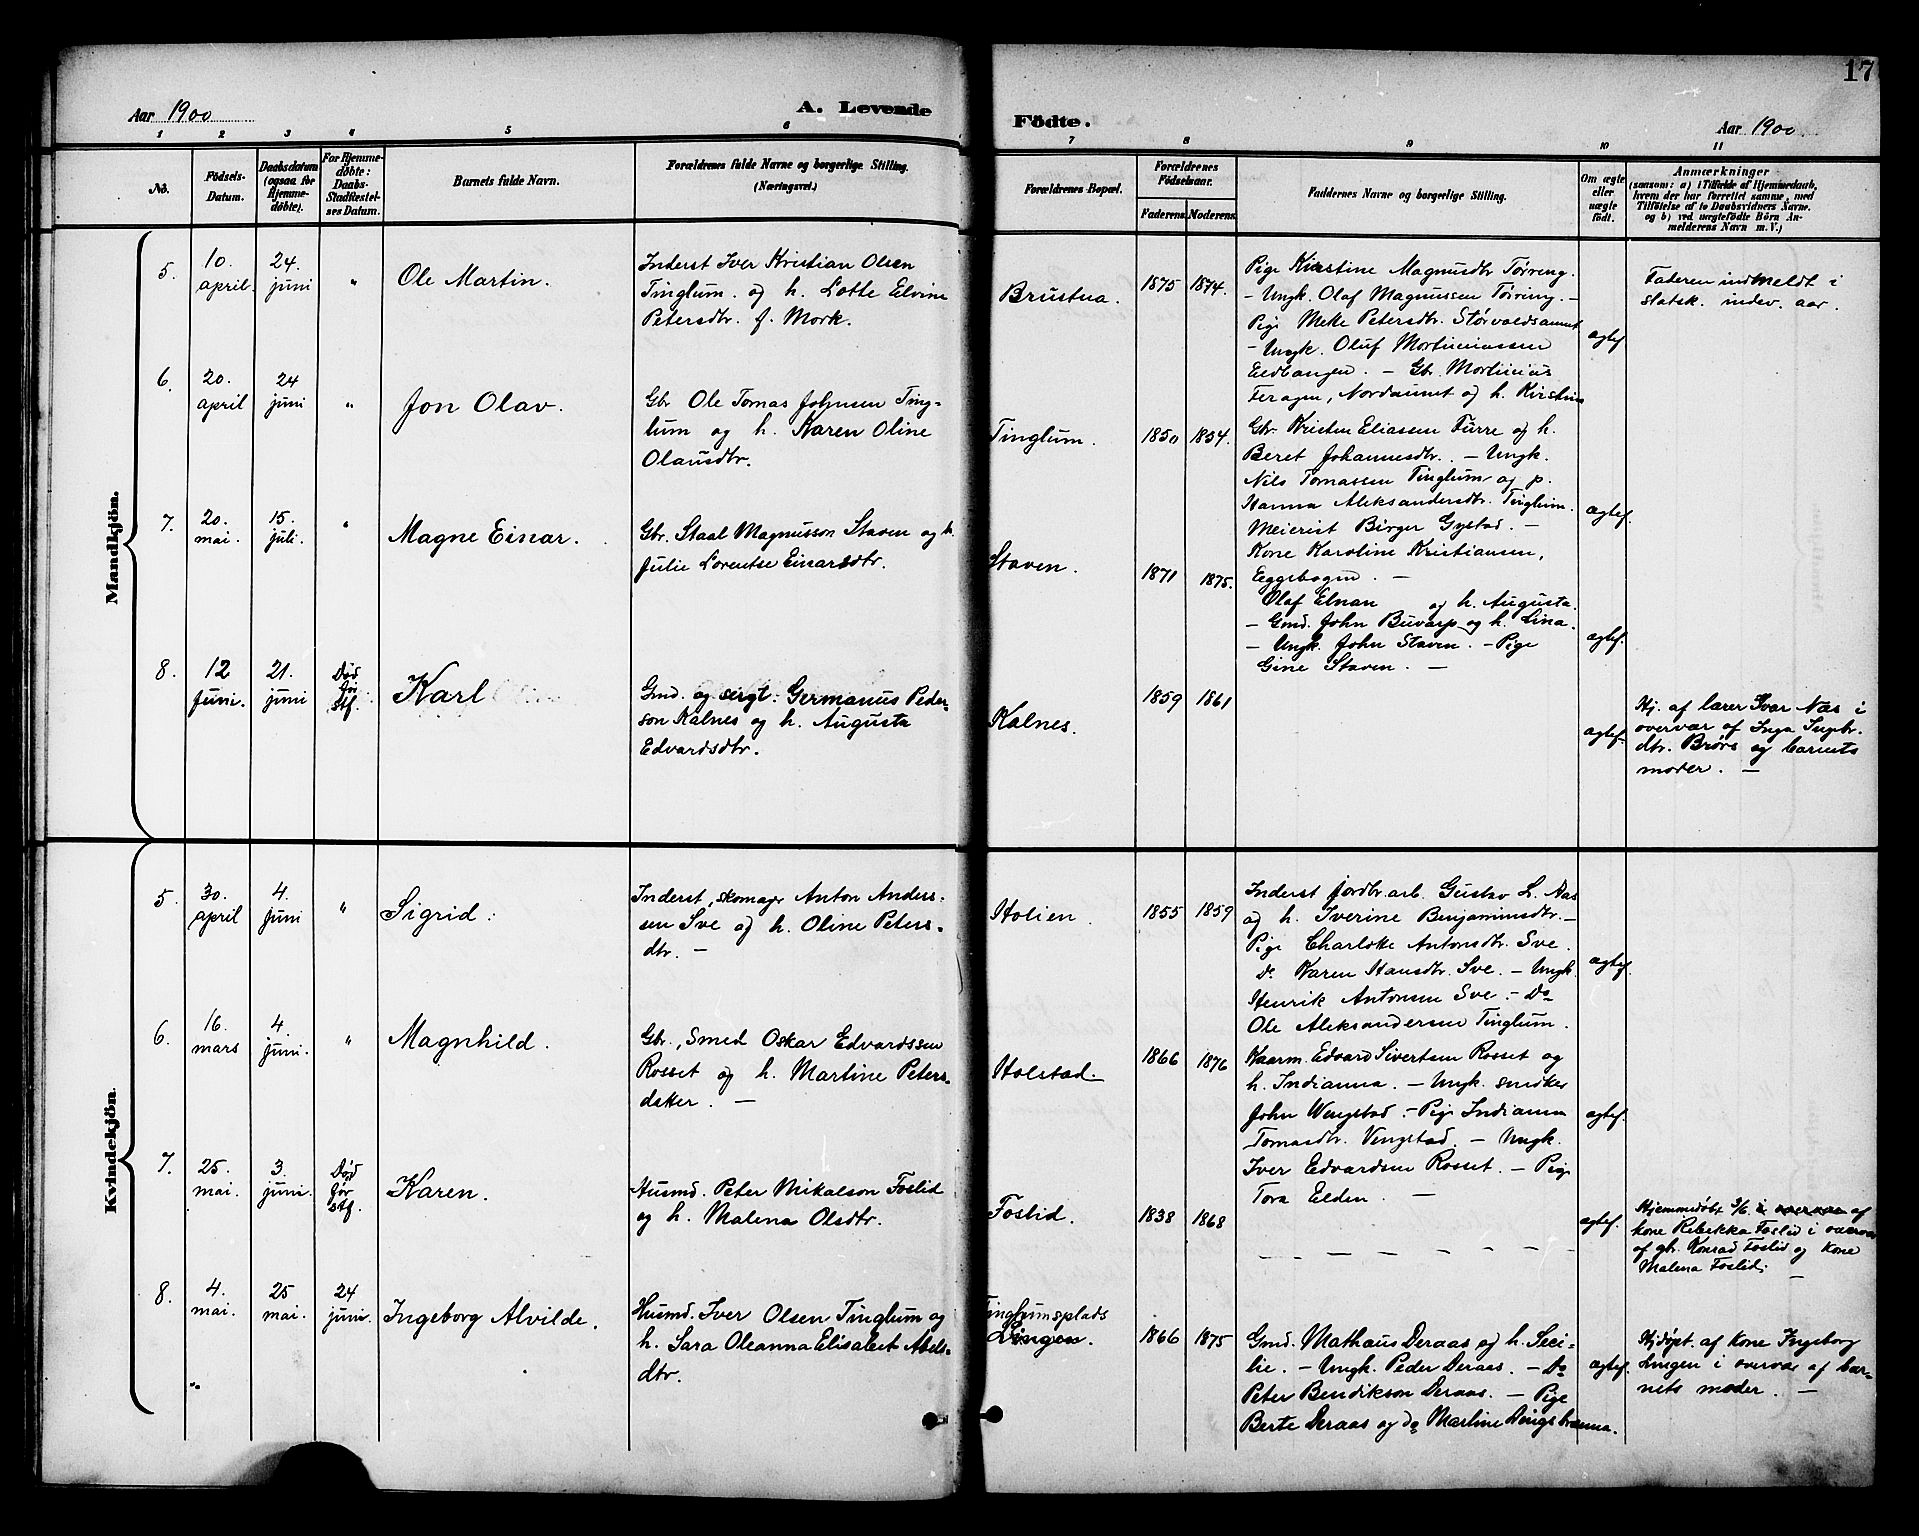 17
Aar 1900
A. Levende
Födte.
Aar 1900
1 2 3 4 5 6
7 8 9 10 11
No.
Födsels-
Datum.
Daabsdatum
(ogsaa for
Hjemme-
döbte).
For Hjemme-
döbte:
Daabs-
Stadfæstel-
ses Datum.
Barnets fulde Navn.
Forældrenes fulde Navne og borgerlige Stilling.
(Næringsvei.)
Forældrenes Bopæl.
Forældrenes
Födselsaar.
Faderens Moderens
Faddernes Navne og borgerlige Stilling.
Om ægte
eller
uægte
födt.
Anmærkninger
(saasom: a) i Tilfælde af Hjemmedaab,
hvem der har forrettet samme, med
Tilföielse af to Daabsvidners Navne.
og b) ved uægtefödte Börn An-
melderens Navn m. V.)
Mandkjön.
5.
10.
april.
24.
juni
"
Ole Martin.
Inderst Iver Kristian Olsen
Tinglum. og h. Lotte Elvine
Petersdtr. f. Mork.
Brustua.
1875
1874.
Pige Kirstine Magnusdtr Tørring.
- Ungk. Olaf Magnussen Tørring. -
Pige Mette Petersdtr. Størvoldsaunet
- Ungk. Oluf Mortinussen
Eldbangen. - Gbr. Mortinus
Feragen, Nordaunet og h. Kirstine
ægtef.
Faderen indmeldt i
statsk. indev. aar.
6.
20.
april
24
juni
"
Jon Olav.
Gbr Ole Tomas Johnsen Ting-
lum og h. Karen Oline
Olausdtr.
Tinglum.
1850
1854.
Gbr. Kristen Eliassen Furre og h.
Beret Johannesdtr. - Ungk.
Nils Tomassen Tinglum og p.
Hanna Aleksandersdtr. Tinglum.
ægtef.
7.
20.
mai.
15.
juli.
"
Magne Einar.
Gbr. Staal Magnusson Staven og h.
Julie Lorentse Einarsdtr.
Staven.
1871
1875.
Meierist Birger Gystad. -
Kone Karoline Kristiansen,
Eggebogen. -
Olaf Elnan og h. Augusta.
- Gmd. John Buvarp og h. Lina.
- Ungk. John Staven. - Pige
Gine Staven. -
ægtef.
8.
12
Juni.
21.
juni
Død
før
stf.
Karl
Gmd. og sergt. Germanus Peder-
son Kalnes og h. Augusta
Edvardsdtr.
Kalnes.
1859
1861
ægtef.
Hj. af lærer Ivar Næs i
overvær af Inga Ingbr.
dtr. Brørs og barnets
moder. -
Kvindekjön.
5.
30.
april
4.
Juni
"
Sigrid.
Inderst, skomager Anton Anders-
sen Sve og h. Oline Peters-
dtr. -
Holien.
1855
1859
Inderst jordbr.arb. Gustav L. Aas
og h. Iverine Benjaminsdtr. -
Pige Charlotte Antonsdtr. Sve.
Do. Karen Hansdtr. Sve. - Ungk.
Henrik Antonsen Sve. - Do
Ole Aleksandersen Tinglum.
ægtef.
6.
16.
mars
4.
juni.
"
Magnhild.
Gbr., Smed Oskar Edvardssen
Rosset og h. Martine Peters-
datter. -
Holstad.
1866
1876
Kaarm. Edvard Sivertsen Rosset og
h. Indianna. - Ungk. snedker
John Wengstad. - Pige Indianna
Tomasdtr. Vengstad. - Ungk.
Iver Edvardsen Rosset. - Pige
Tora Elden. -
ægtef.
7.
25.
mai.
3.
juni.
Død
før
stf.
Karen.
Husmd. Peter Mikalson Foslid
og h. Malena Olsdtr.
Foslid.
1838
1868
- - - - - - - -
ægtef.
Hjemmedøbt 3/6 i overvær af
kone Rebekka Foslid i overvær
af gb. Konrad Foslid og Kone
Malena Foslid. -
8.
4.
mai.
25
mai.
24
juni.
Ingeborg Alvilde.
Husmd. Iver Olsen Tinglum og
h. Sara Oleanna Elisabet Abels-
dtr.
Tinglumsplads
Lingen.
1866
1875
Gmd. Mathaus Deraas og h. Seci-
lie. - Ungk. Peder Deraas. - Do
Peter Bendikson Deraas. - Pige
Berte Deraas og do Martine Dingsbrenna.
ægtef.
Hjdøpt. af kone Ingeborg
Lingen i overvær af bar-
nets moder. -